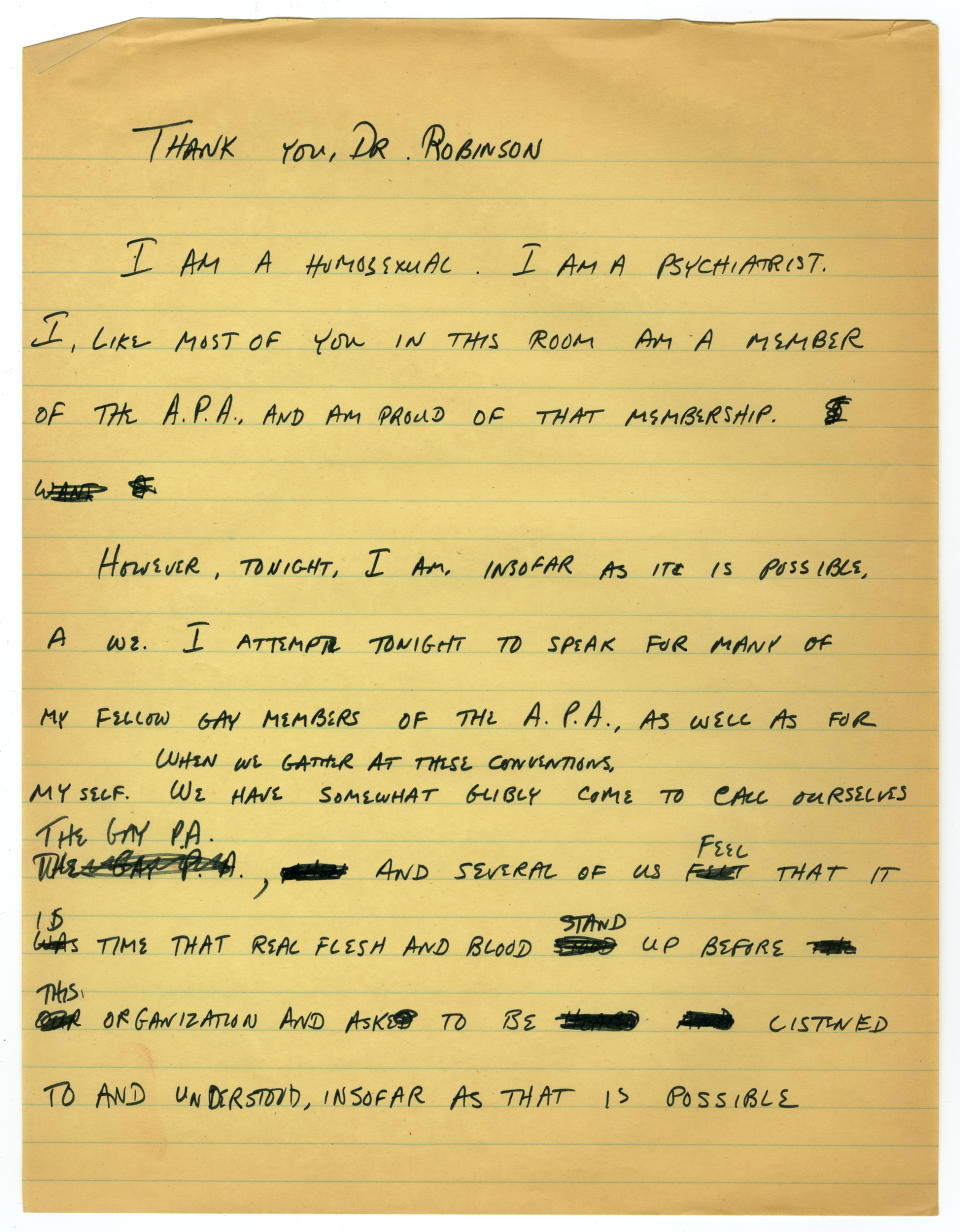 THANK YOU, DR. ROBINSON
I AM A HOMOSEXUAL. I AM A PSYCHIATRIST.
I, LIKE MOST OF YOU IN THIS ROOM AM A MEMBER
OF THE A.P.A., AND AM PROUD OF THAT MEMBERSHIP. I
WANT
HOWEVER, TONIGHT, I AM, INSOFAR AS IT IS POSSIBLE,
A WE. I ATTEMPT TONIGHT TO SPEAK FOR MANY OF
MY FELLOW GAY MEMBERS OF THE A.P.A., AS WELL AS FOR
WHEN WE GATHER AT THESE CONVENTIONS,
MYSELF. WE HAVE SOMEWHAT GLIBLY COME TO CALL OURSELVES
THE GAY P.A.
THE GAY P.A., AND SEVERAL OF US FELT THAT IT
FEEL
IS STAND
WAS TIME THAT REAL FLESH AND BLOOD STOOD UP BEFORE
THIS
OUR ORGANIZATION AND ASKED TO BE HEARD AND LISTENED
TO AND UNDERSTOOD, INSOFAR AS THAT IS POSSIBLE